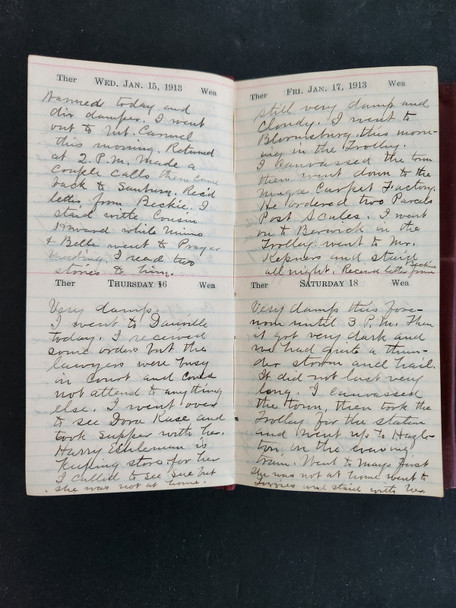 Ther WED. JAN. 15, 1913 Wea
today and
damper. I went
out to Mt. Carmel
this morning. Returned
at 2 P.M. Made a
Couple Calls then came
back to Sunbury. Rec'd
letter from Beckie. I
staid with Cousin
Howard while Mims
& Bella went to Prayer
Meeting. I read two
stories to him.
Ther THURSDAY 16 Wea
Very damp.
I went to Danville
today. I received
some orders but the
lawyers were busy
in court and could
not attend to anything
else. I went over
to see Dora Kase and
took supper with her.
Harry is
keeping store for her
I called to see but
she was not at home.
Ther FRI. JAN. 17, 1913 Wea
still very damp and
Cloudy. I went to
Bloomsburg this mor-
ning in the Trolley.
I canvassed the town
then went down to the
Magee Carpet Factory.
He ordered two Parcels
Post Scales. I went
on to Berwick in the
Trolley went to Mr.
Kepners and staid
all night. Received letter from
Beckie
Ther SATURDAY 18 Wea
Very damp this fore-
noon until 3 P.M. then
it got very dark and
we had quite a thun-
der storm and hail.
It did not last very
long. I canvassed
the town, then took the
Trolley for the station
and went up to Hazle-
ton on the evening
train. Went to Mays first
she was not at home went to
and staid with her